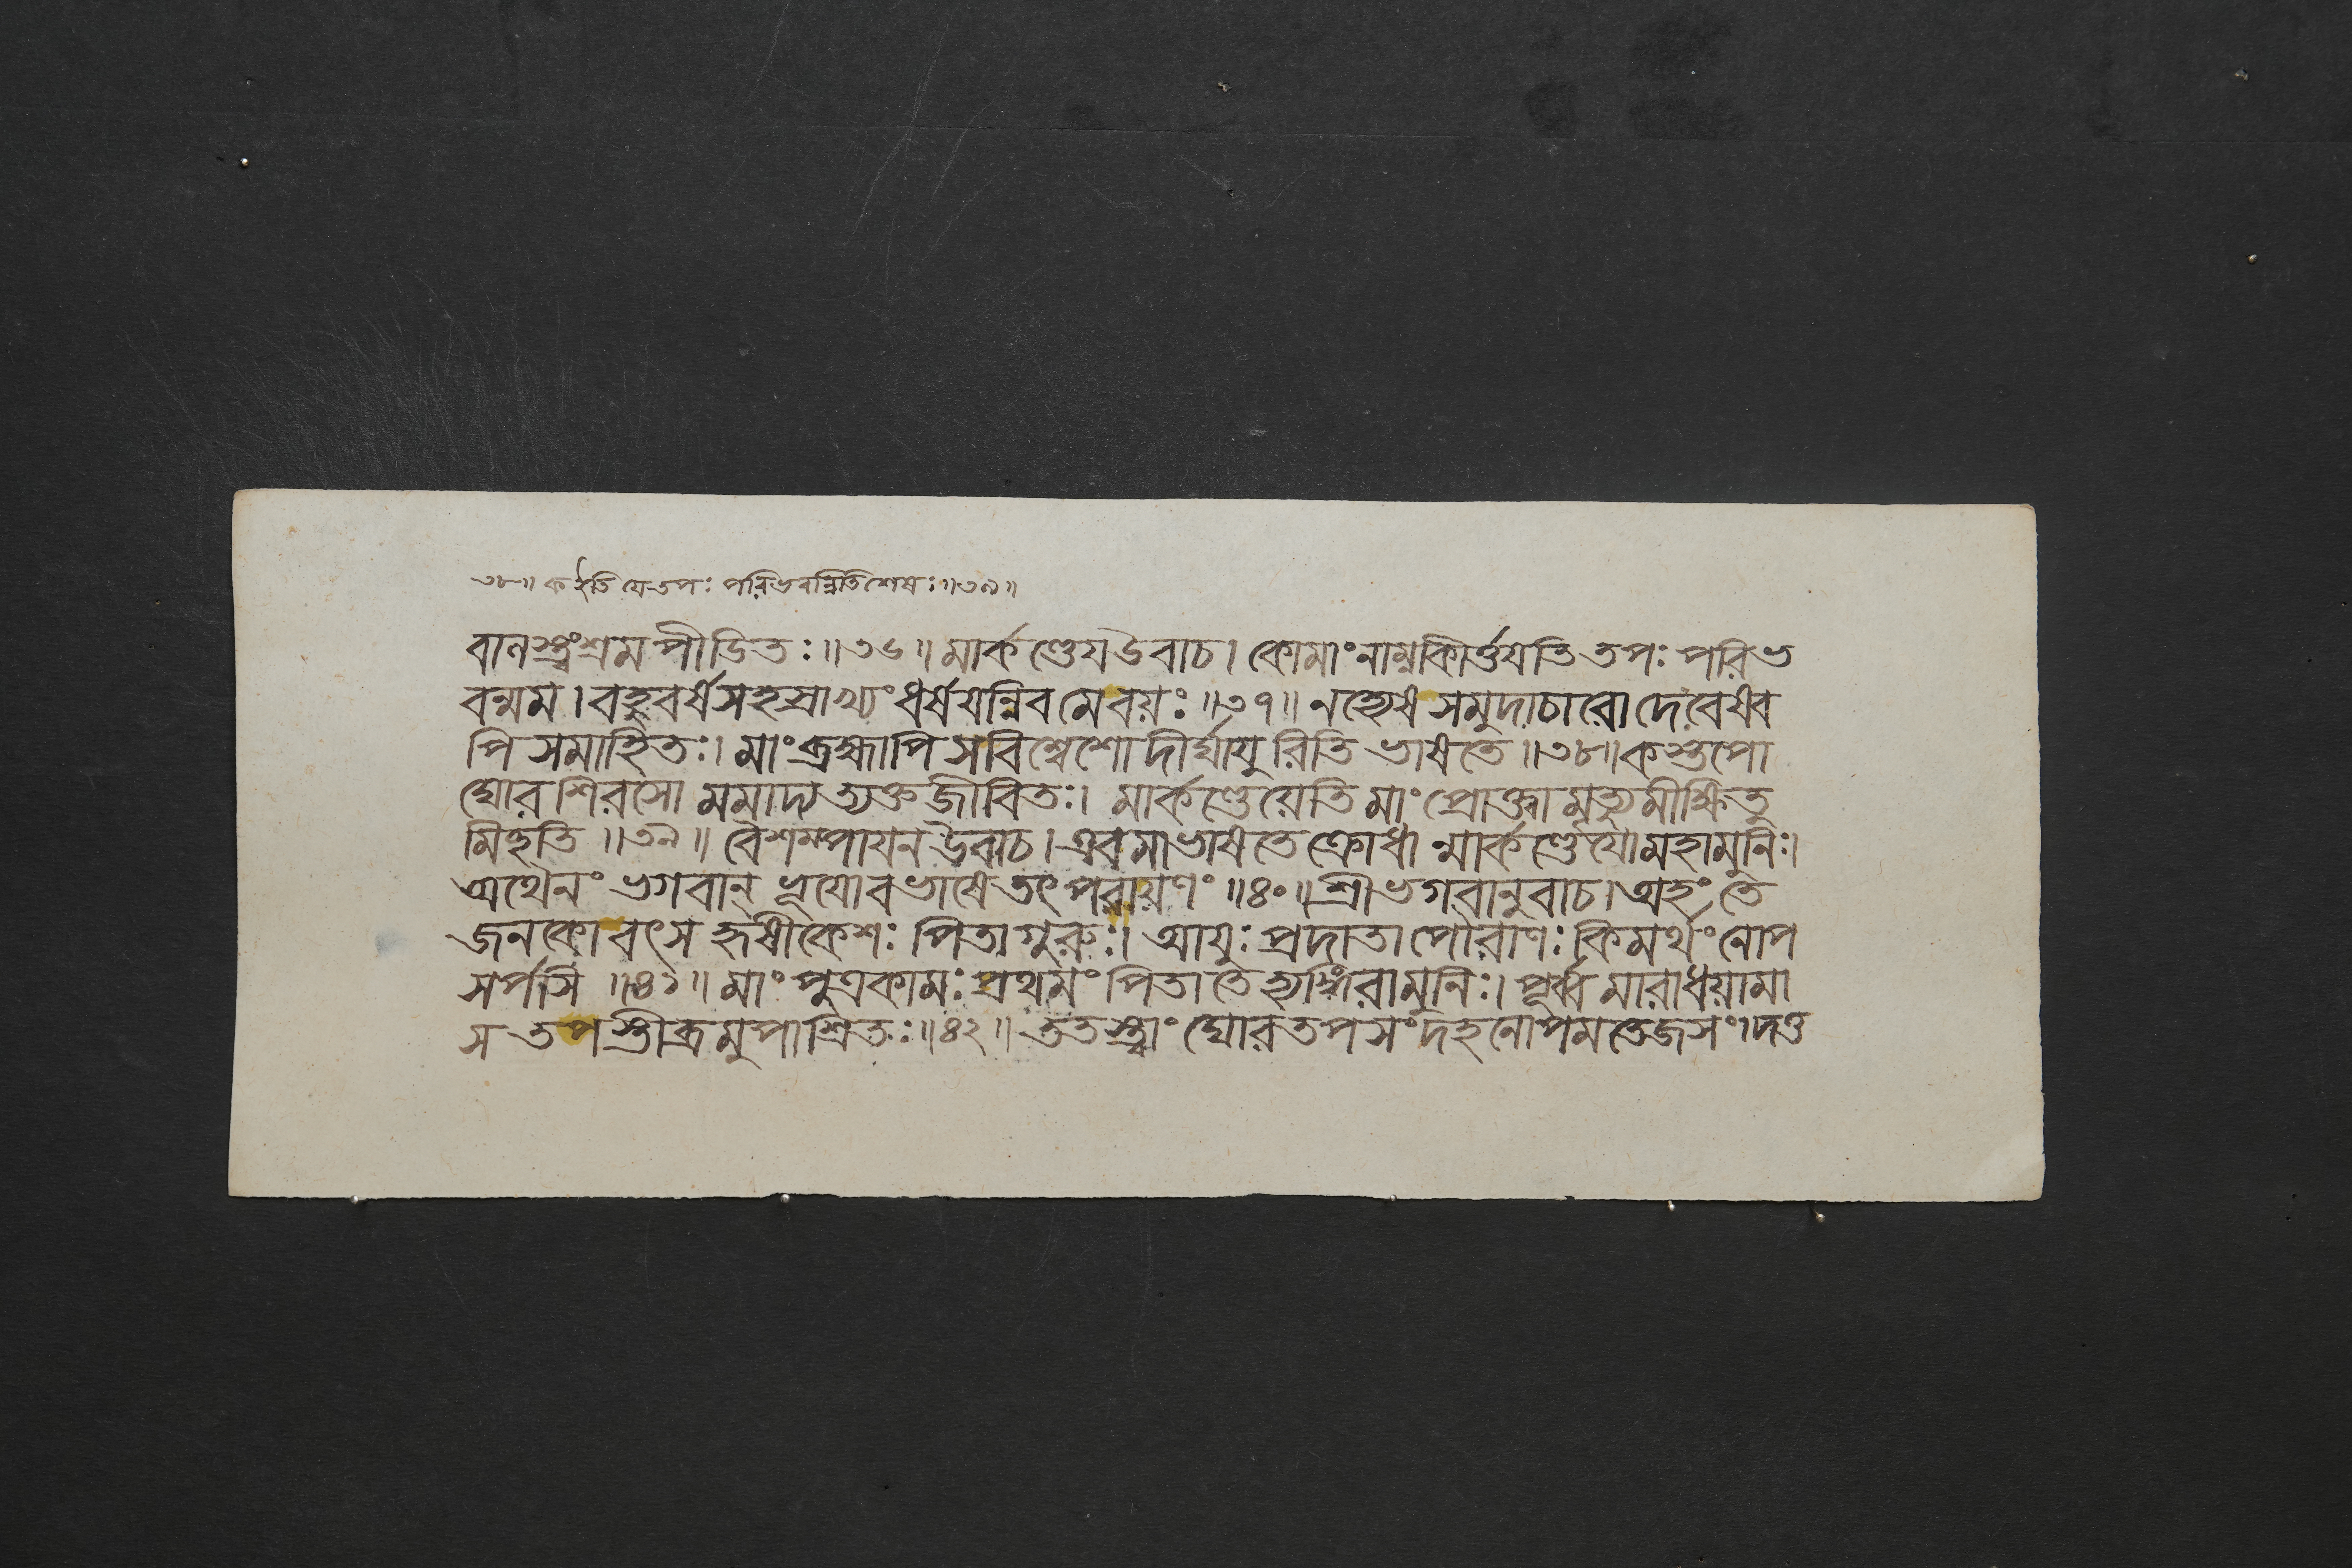 ৩৮॥ ক ইতি মে তপঃ পরিভবন্নিতিশেষঃ॥৩৯॥
বানস্ত্বংশ্রমপীডিতঃ॥৩৬॥মার্কণ্ডেযউবাচ।কোমাংনাম্নকীর্ত্তযতিতপঃপরিভ
বন্মম।বহুবর্ষসহস্রাখ্যংধর্ষযন্নিবমেবয়ঃ॥৩৭॥নহ্যেষসমুদাচারোদেবেষ্বব
পিসমাহিতঃ।মাংব্রহ্মাপিসবিশ্বেশোদীর্ঘাযুরিতিভাষতে॥৩৮॥কস্তপো
ঘোরশিরসোমমাদ্যত্যক্তজীবিতঃ।মার্কণ্ডেয়েতিমাংপ্রোক্ত্বামৃত্যুমীক্ষিতু
মিহতি॥৩৯॥বৈশম্পাযনউবাচ।এবমাভাষতেক্রোধান্মার্কণ্ডেযোমহামুনিঃ।
অথৈনংভগবান্ভূযোবভাষেতৎপরায়ণং॥৪০॥শ্রীভগবানুবাচ।অহংতে
জনকোবৎসহৃষীকেশঃপিতাগুরুঃ।আযুঃপ্রদাতাপৌরাণঃকিমর্থংনোপ
সর্পসি॥৪১॥মাংপুত্রকামঃপ্রথমংপিতাতেহ্যঙ্গিরামুনিঃ।পূর্ব্বমারাধয়ামা
সতপস্তীব্রমুপাশ্রিতঃ॥৪২॥ততস্ত্বাংঘোরতপসংদহনোপমতেজসং।দত্ত